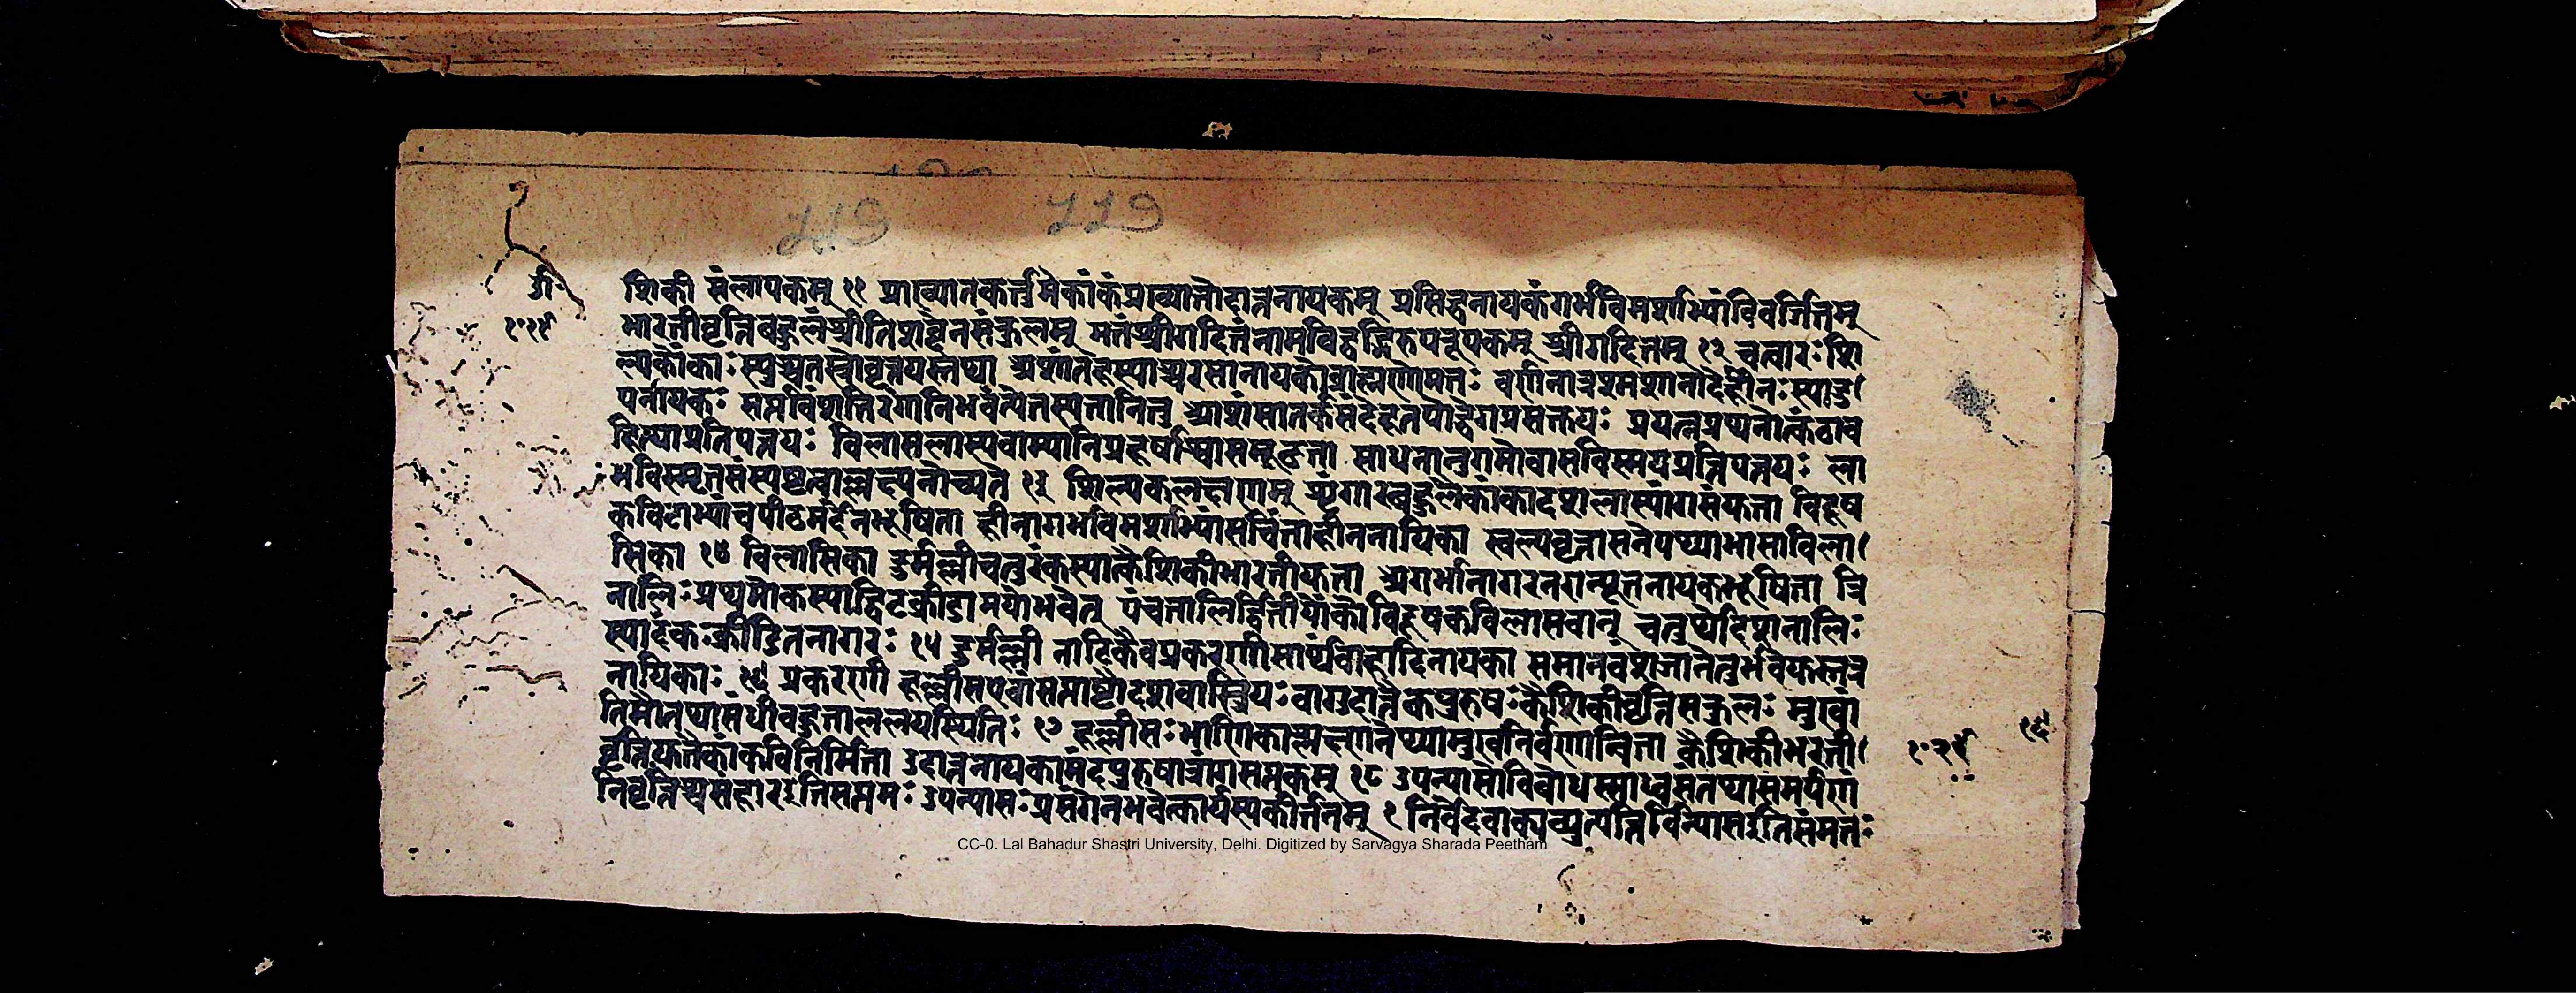 119 119
शिकी संलापकम् ११ प्राख्यातकर्त्तुमेकांकंप्राख्यातोदात्तनायकम् प्रसिद्धनायकंगर्भविमर्शाभ्यांविवर्जितम्
भारतीवृत्तिबहुलंश्रीतिशब्देनसंकुलम् मतंश्रीगदितंनामविद्वद्भिरुपरूपकम् श्रीगदितम् १२ चत्वारः शि
ल्पकेंकाः स्युश्चतस्त्रोवृत्तयस्तथा अशांतहास्याश्चरसानायकोब्राह्मणोमतः वर्णनात्रश्मशानादेर्हीनः स्यादु
पनायकः सप्तविंशतिरंगानिभवंत्येतस्यतानितु आशंसातर्कसंदेहतापोद्वेगप्रसक्तयः प्रयत्नग्रथनोत्कंठाव
हित्थाप्रतिपत्तयः विलासलास्यवाम्यानिप्रहर्षाश्वासमूढता साधनानुगमोच्छ्वासविस्मयप्रतिपत्तयः ला
भविस्मृतसंस्पष्टत्वाल्लक्ष्यनोच्यते १३ शिल्पकलक्षणम् शृंगारबहुलैकांकादशलास्यांगसंयुता विदूष
कविटाभ्यांचपीठमर्देनभूषिता हीनागर्भविमर्शाभ्यांसचिंताहीननायिका स्वल्पवृत्तासनेपथ्याभासाविला
सिका १४ विलासिका दुर्मल्लीचतुरंकस्यात्कैशिकीभारतीयुता अगर्भानागरनरान्यूननायकभूषिता त्रि
नालिः प्रथमोंकस्याद्विटक्रीडामयोभवेत् पंचनालिर्द्वितीयोंकोविदूषकविलासवान् चतुर्थेदिशनालिः
स्यादंकः क्रीडितनागरः १५ दुर्मल्ली नाटिकैवप्रकरणीसार्थवाहादिनायका समानवंशजानेतुर्भवेद्यत्रच
नायिकाः १६ प्रकरणी हल्लीसएवासप्ताष्टौदशवास्त्रियः वागुदात्तैकपुरुषः कैशिकीवृत्तिसंकुलः मुखां
तिमौतथासंधीबहुतालललयस्थितिः १७ हल्लीसः भाणिकाश्लक्ष्णनेपथ्यामुखनिर्वणान्विता कैशिकीभरती
वृत्तियुतैकांकविनिर्मिता उदात्तनायकामंदपुरुषात्रांगसप्तकम् १८ उपन्यासोविबोधस्साध्वसतथासमर्पणं
निवृत्तिश्चसंहारइतिसप्तमः उपन्यासः प्रसंगेनभवेत्कार्यस्यकीर्त्तनम् १ निर्वेदवाक्यव्युत्पत्तिर्विन्यासइतिसंमतः
CC-0. Lal Bahadur Shastri University, Delhi. Digitized by Sarvagya Sharada Peetham